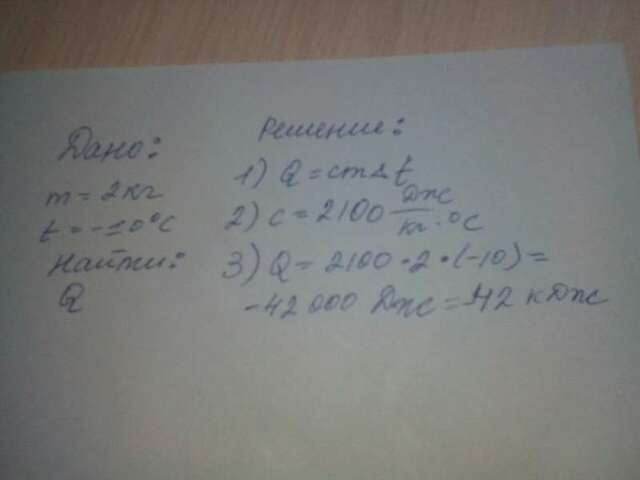 Дано:
m = 2кг
t = -10°C
Найти:
Q
Решение:
1) Q = cm∆t
2) c = 2100 Дж/кг·°C
3) Q = 2100·2·(-10) =
-42 000 Дж = -42 кДж